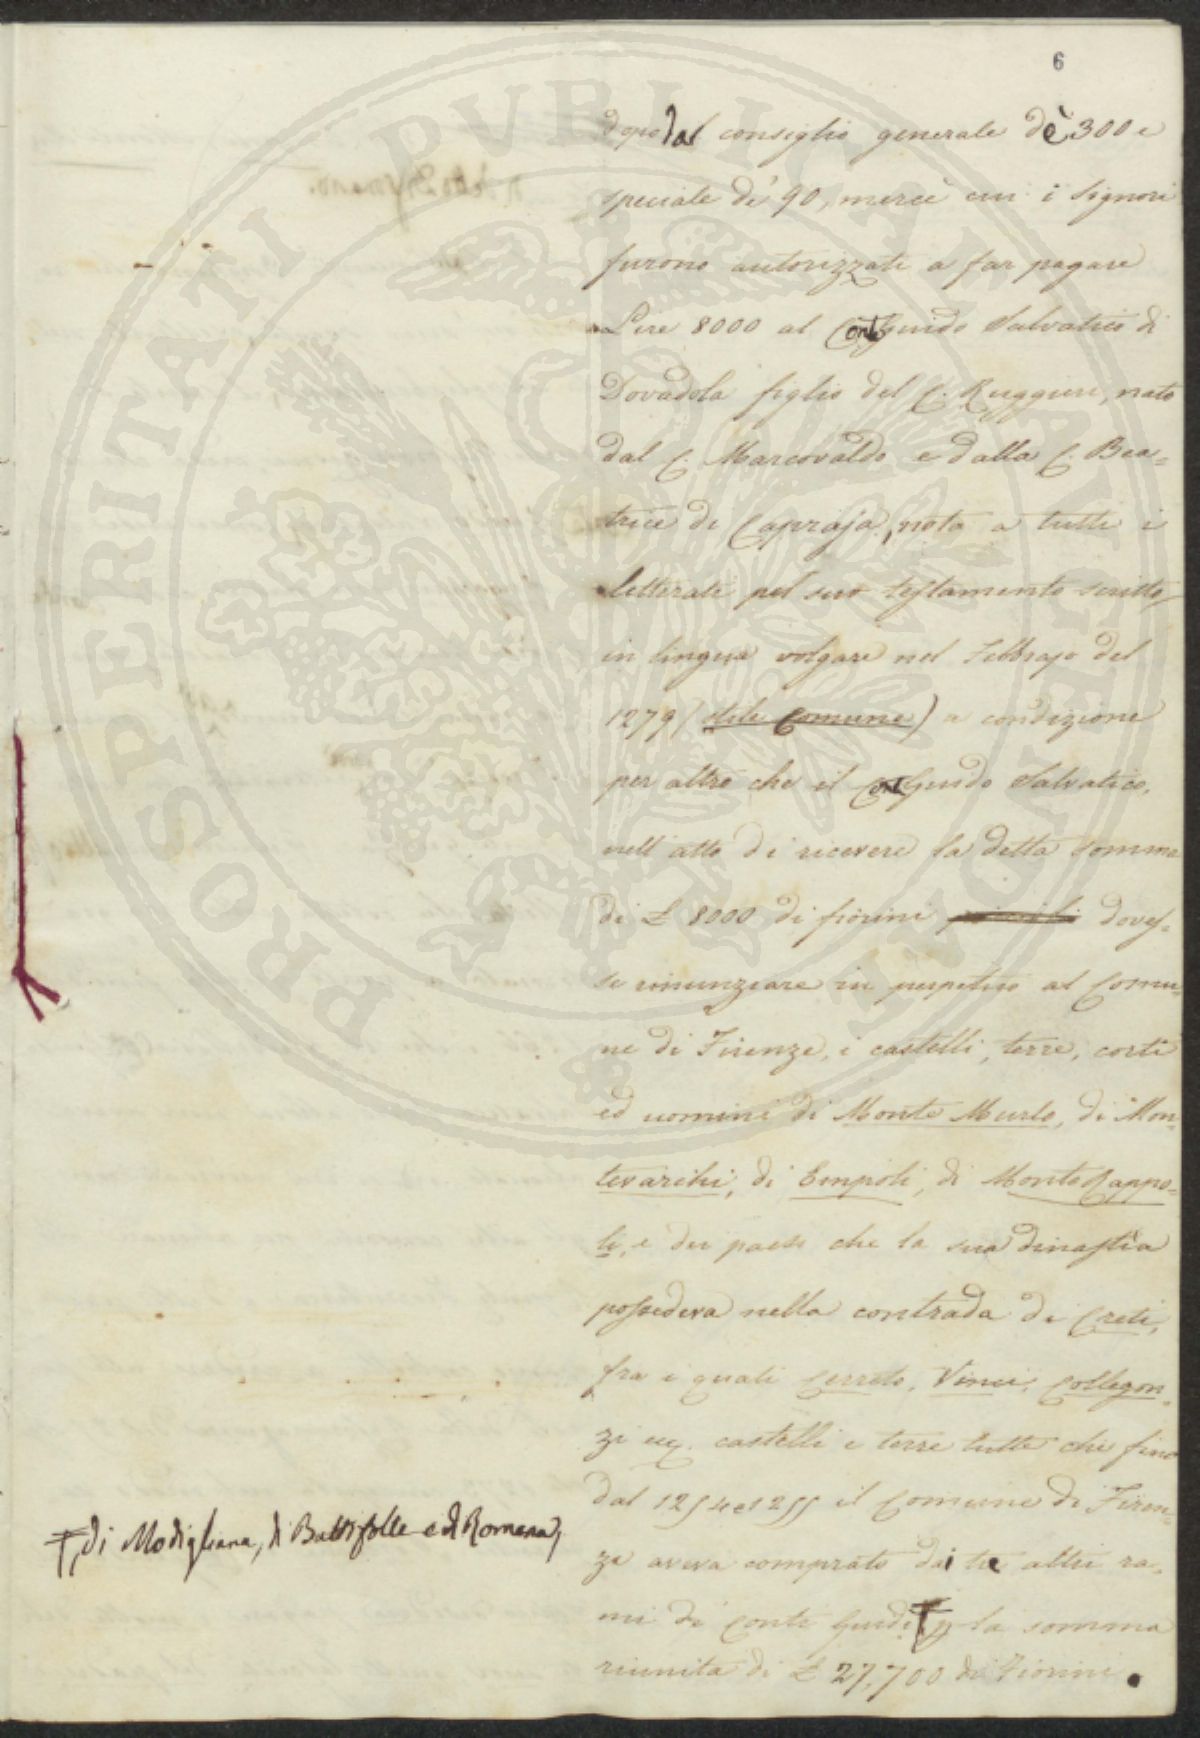 6
dopo dal consiglio generale dè 300 e
speciale de' 90, mercè cui i Signori
furono autorizzati a far pagare
Lire 8000 al Cont. Guido Salvatico di
Dovadola figlio del C. Ruggieri, nato
dal C. Marcovaldo e dalla C. Bea=
trice di Capraja, nota a tutti i
letterati pel suo testamento scritto
in lingua volgare nel Febbrajo del
1279 (stile Comune) a condizione
per altro che il Cont Guido Salvatico,
nell'atto di ricevere la detta somma
di £ 8000 di fiorini doves-
se rinunziare in perpetuo al Comu-
ne di Firenze, i castelli, terre, corti
ed uomini di Monte Murlo, di Mon-
tevarchi, di Empoli, di Monte Rappo-
li, e dei paesi che la sua dinastia
possedeva nella contrada di Creti,
fra i quali Cerreto, Vinci, Collegon-
zi ec. castelli e terre tutte che fino
dal 1254 e 1255 il Comune di Firen-
ze aveva comprato dai tre altri ra-
mi di Conti Guidi p la somma
riunita di £ 27,700 di Fiorini.
, di Modigliana, di Battifolle e di Romena,
PROSPERITATI PUBLICAE AUGENDAE